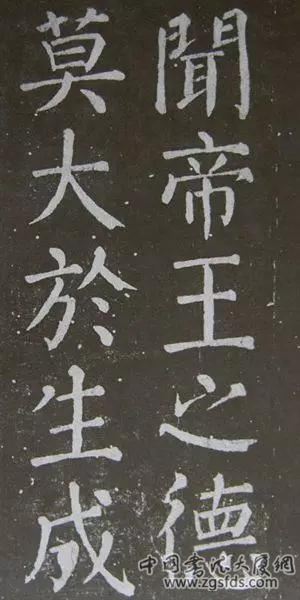 聞帝王之德
莫大於生成
中国书法大厦网
www.zgsfds.com